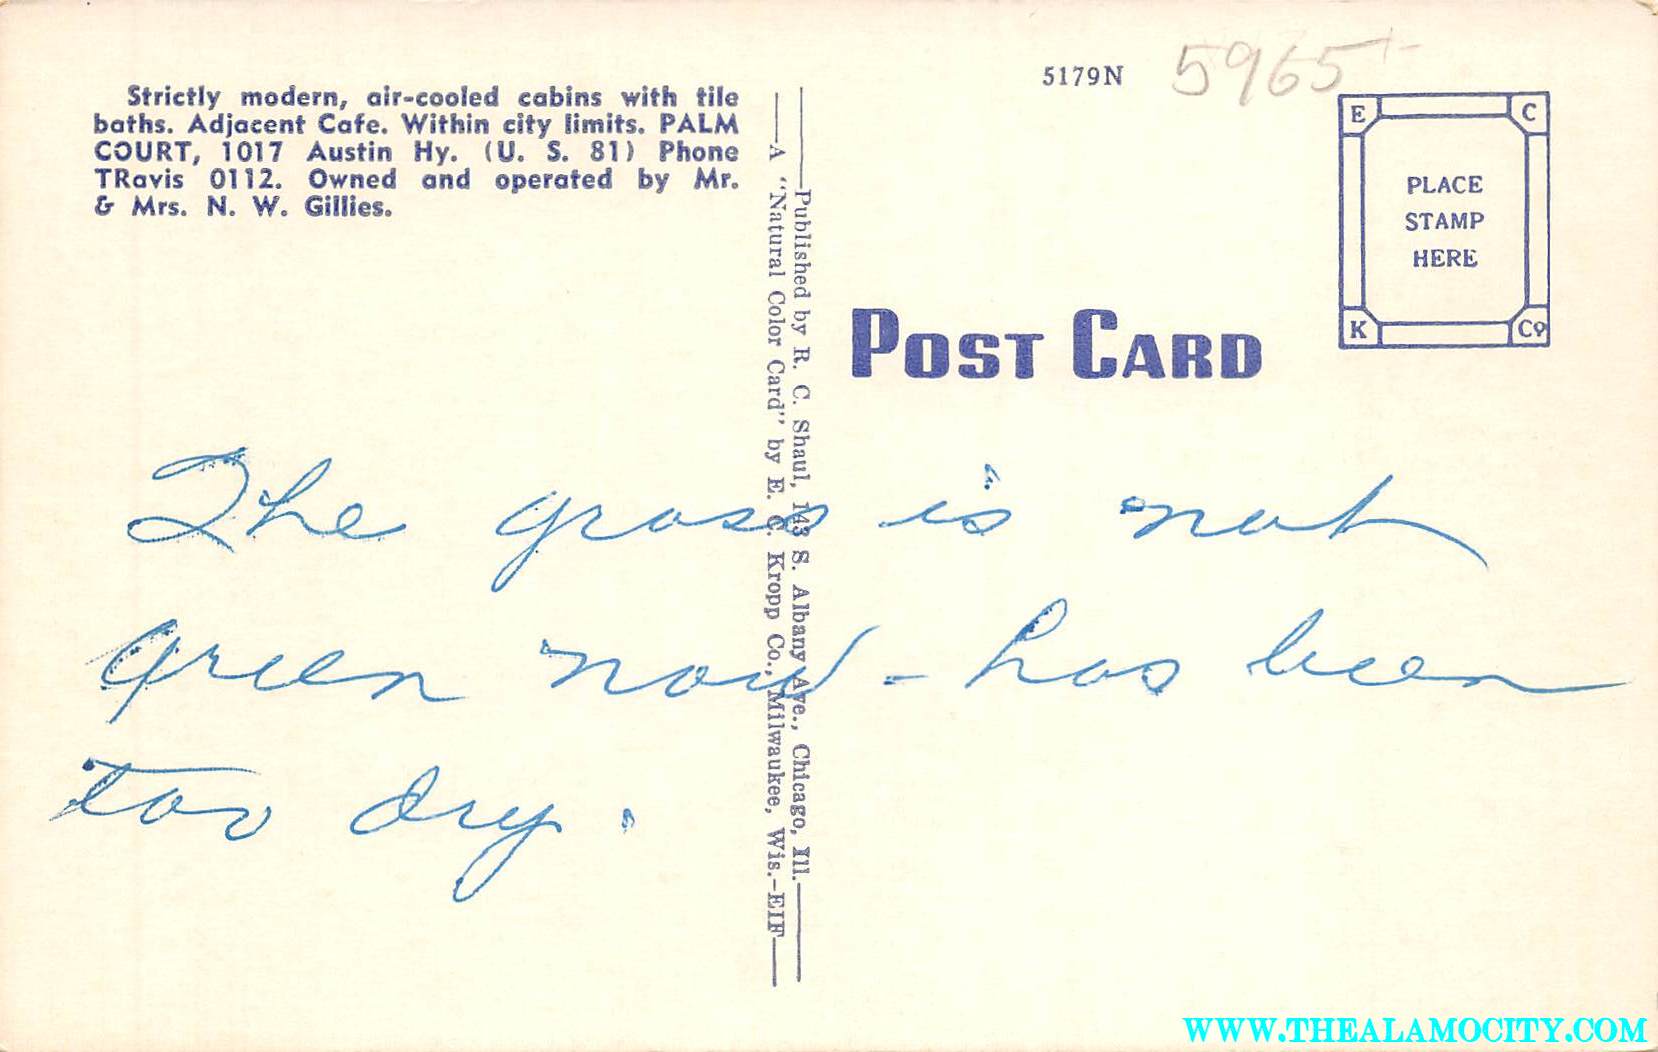 Strictly modern, air-cooled cabins with tile
baths. Adjacent Cafe. Within city limits. PALM
COURT, 1017 Austin Hy. (U. S. 81) Phone
TRavis 0112. Owned and operated by Mr.
& Mrs. N. W. Gillies.
A "Natural Color Card" by E. C. Kropp Co., Milwaukee, Wis.-EIF
Published by R. C. Shaul, 143 S. Albany Ave., Chicago, Ill.
5179N
5965
E C
PLACE
STAMP
HERE
K Co
POST CARD
The grass is not
green now - has been
too dry.
WWW.THEALAMOCITY.COM